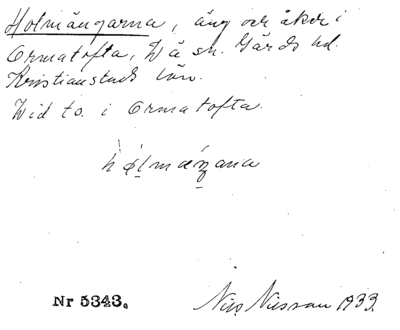 Holmängarna, äng och åker i
Ormatofta, Wä sn. Gärds hd.
Kristianstads län.
Wid to. i Ormatofta.
hólmáŋana
Nr 5343.
Nils Nilsson 1933.